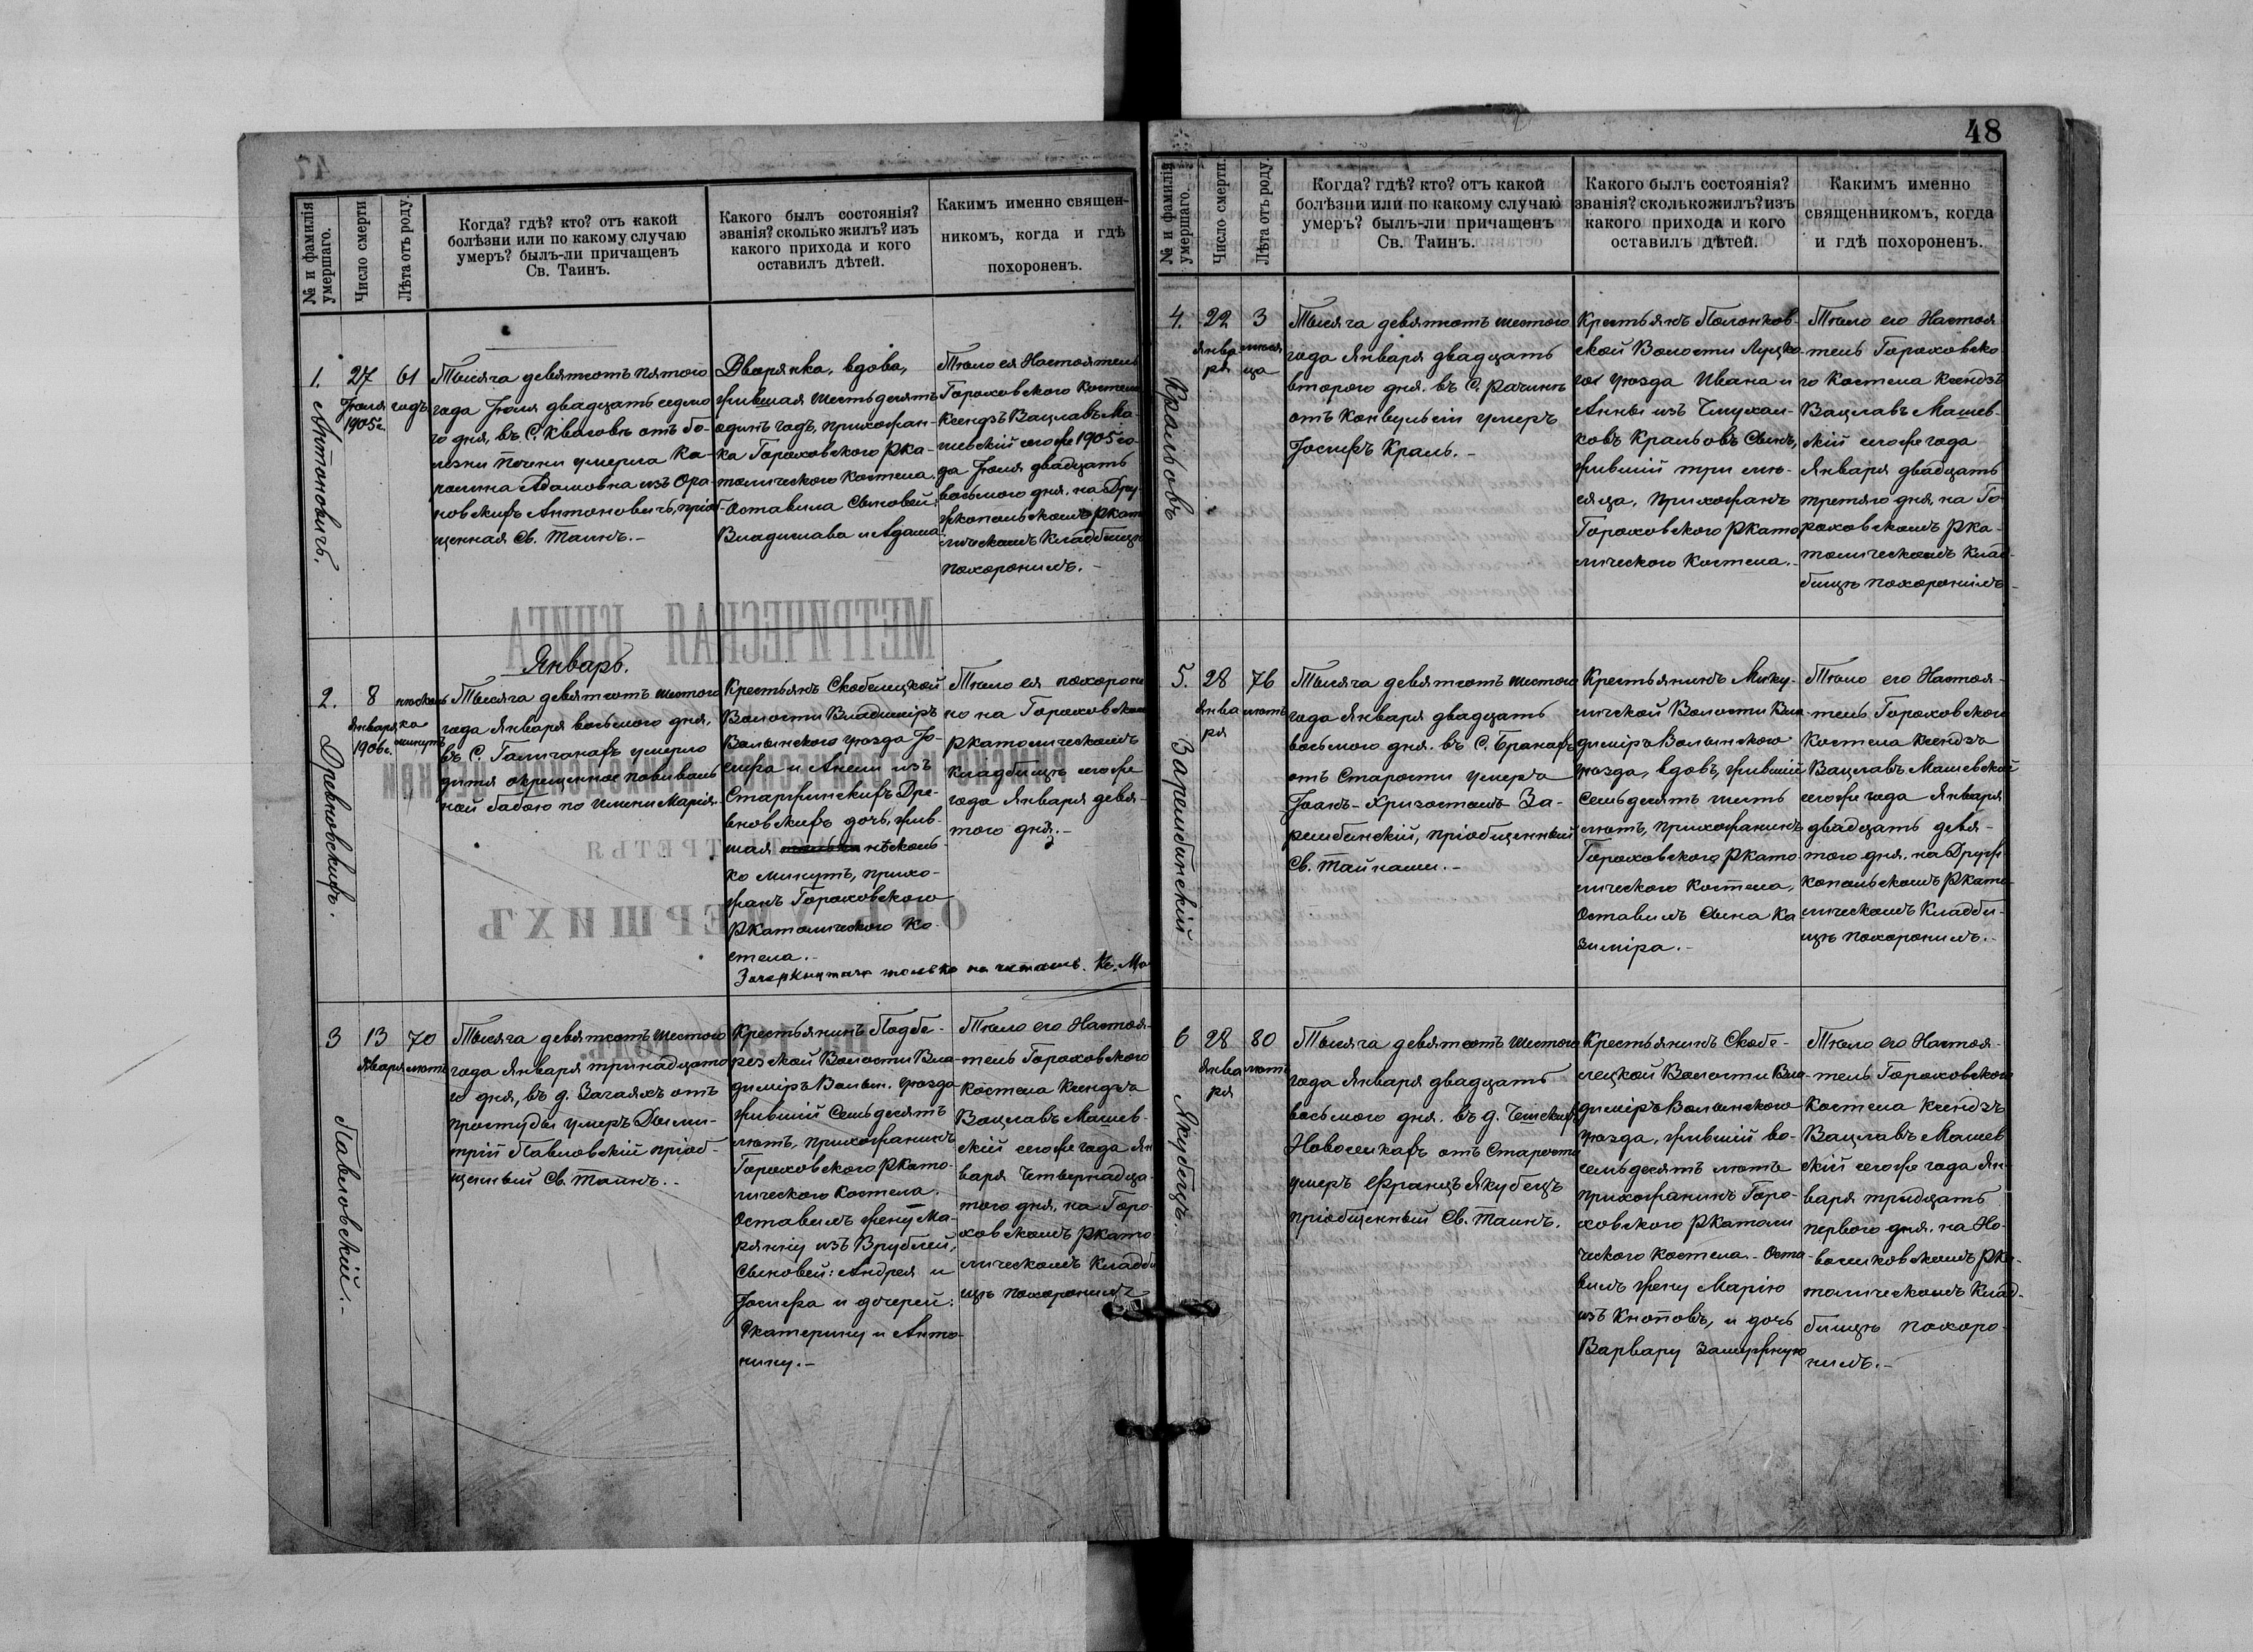 № и фамилія умершаго.
Число смерти
Лѣта отъ роду.
Когда? гдѣ? кто? отъ какой
болѣзни или по какому случаю
умеръ? былъ-ли причащенъ
Св. Таинъ.
Какого былъ состоянія?
званія? сколько жилъ? изъ
какого прихода и кого
оставилъ дѣтей.
Какимъ именно священ-
никомъ, когда и гдѣ
похороненъ.
1. Антоновичъ.
27
Іюля
1905 г.
61
годъ
Тысяча девятсотъ пятого
года Іюля двадцать седмо
го дня, въ С. Квасовѣ отъ бо-
лѣзни почки умерла Ка-
ролина Адамовна изъ Ора-
новскихъ Антоновичъ, пріоб-
щенная Св. Таинъ.-
Дворянка, вдова,
жившая шестьдесятъ
одинъ годъ, прихожан-
ка Гороховского Рка-
толического костела.
Оставила Сыновей:
Владислава и Адама
Тѣло ея Настоятель
Гороховского Костела
Ксендзъ Вацлавъ Ма-
шевскій сегоже 1905 го-
да Іюля двадцать
восьмого дня. на Дру-
жкопольскомъ Ркато
лическомъ Кладбищѣ
похоронилъ.-
Январь.
2. Древновскихъ.
8
Января
1906 г.
нѣсколь
ко
минутъ
Тысяча девятсотъ шестого
года Января восьмого дня,
въ С. Галичанахъ умерло
дитя окрещенное повиваль
ной бабою по имени Марія.
Крестьянъ Скобелецкой
Волости Владиміръ
Волынского уѣзда Іо-
сифа и Анели изъ
Старжинскихъ Дре-
вновскихъ дочь, жив-
шая нѣсколь-
ко минутъ, прихо-
жанъ Гороховского
Ркатолического Ко-
стела.-
Тѣло ея похороне
но на Гороховском
Ркатолическомъ
Кладбищѣ сегоже
года Января девя-
того дня.-
Зачеркнутаго только не читать. Кс. Ма
3 Павловскій.-
13
Января
70
лѣтъ
Тысяча девятсотъ шестого
года Января тринадцато
го дня, въ д. Загаяхъ отъ
простуды умеръ Дими-
трій Павловскій пріоб-
щенный Св. Таинъ.-
Крестьянинъ Подбе-
резской Волости Вла-
диміръ Волын. уѣзда
жившій Семьдесятъ
лѣтъ, прихожанинъ
Гороховского Ркато-
лического костела.
Оставилъ жену Ма-
ріянну изъ Врублей,
Сыновей: Андрея и
Іосифа и дочерей:
Екатерину и Анто-
нину.-
Тѣло его Настоя-
тель Гороховского
Костела Ксендзъ
Вацлавъ Машев-
скій сегоже года Ян
варя Четвернадца-
того дня, на Горо-
ховскомъ Ркато-
лическомъ Кладби
щѣ похоронилъ
48
№ и фамилія умершаго.
Число смерти.
Лѣта отъ роду.
Когда? гдѣ? кто? отъ какой
болѣзни или по какому случаю
умеръ? былъ-ли причащенъ
Св. Таинъ.
Какого былъ состоянія?
званія? сколько жилъ? изъ
какого прихода и кого
оставилъ дѣтей.
Какимъ именно
священникомъ, когда
и гдѣ похороненъ.
4. Кральовъ
22
Янва
ря
3
мѣся
ца
Тысяча девятсотъ шестого
года Января двадцать
второго дня. въ С. Рачинѣ
отъ конвульсіи умеръ
Іосифъ Краль.-
Крестьянъ Полонков-
ской Волости Луцко-
го уѣзда Ивана и
Анны изъ
Кральовъ Сынъ,
жившій три мѣ-
сяца, прихожанъ
Гороховского Ркато
лического Костела.-
Тѣло его Настоя
тель Гороховско
го Костела Ксендзъ
Вацлавъ Машев-
скій сегоже года
Января двадцать
третяго дня, на Го-
роховскомъ Рка-
толическомъ Клад-
бищѣ похоронилъ-
5. Зарембинскій
28
Янва
ря
76
лѣтъ
Тысяча девятсотъ шестого
года Января двадцать
восьмого дня. въ С. Бранахъ
отъ Старости умеръ
Іоанъ-Хризостомъ За-
рембинскій, пріобщенный
Св. Тайнами.-
Крестьянинъ Мику-
лической Волости Вла-
диміръ Волынского
уѣзда, вдовъ, жившій
Семьдесятъ шесть
лѣтъ, прихожанинъ
Гороховского Ркато-
лического Костела,
Оставилъ Сына Ка
зиміра.-
Тѣло его Настоя-
тель Гороховского
Костела Ксендзъ
Вацлавъ Машевскій
сегоже года Января
двадцать девя-
того дня. на Друж
копольскомъ Ркато-
лическомъ Кладби-
щѣ похоронилъ.-
6 Якубецъ.
28
Янва
ря
80
лѣтъ
Тысяча девятсотъ шестого
года Января двадцать
восьмого дня. въ д. Чешскихъ
Новоселкахъ отъ Старости
умеръ Францъ Якубецъ
пріобщенный Св. Таинъ.
Крестьянинъ Скобе-
лецкой Волости Вла-
диміръ Волынского
уѣзда, жившій во-
семьдесятъ лѣтъ
прихожанинъ Горо-
ховского Ркатоли
ческого костела. Оста-
вилъ жену Марію
изъ Кнотовъ, и дочь
Варвару замужную
Тѣло его Настоя-
тель Гороховского
Костела Ксендзъ
Вацлавъ Машев
скій сегоже года Ян-
варя тридцать
первого дня. на Но-
воселковскомъ Рка-
толическомъ Клад-
бищѣ похоро-
нилъ.-